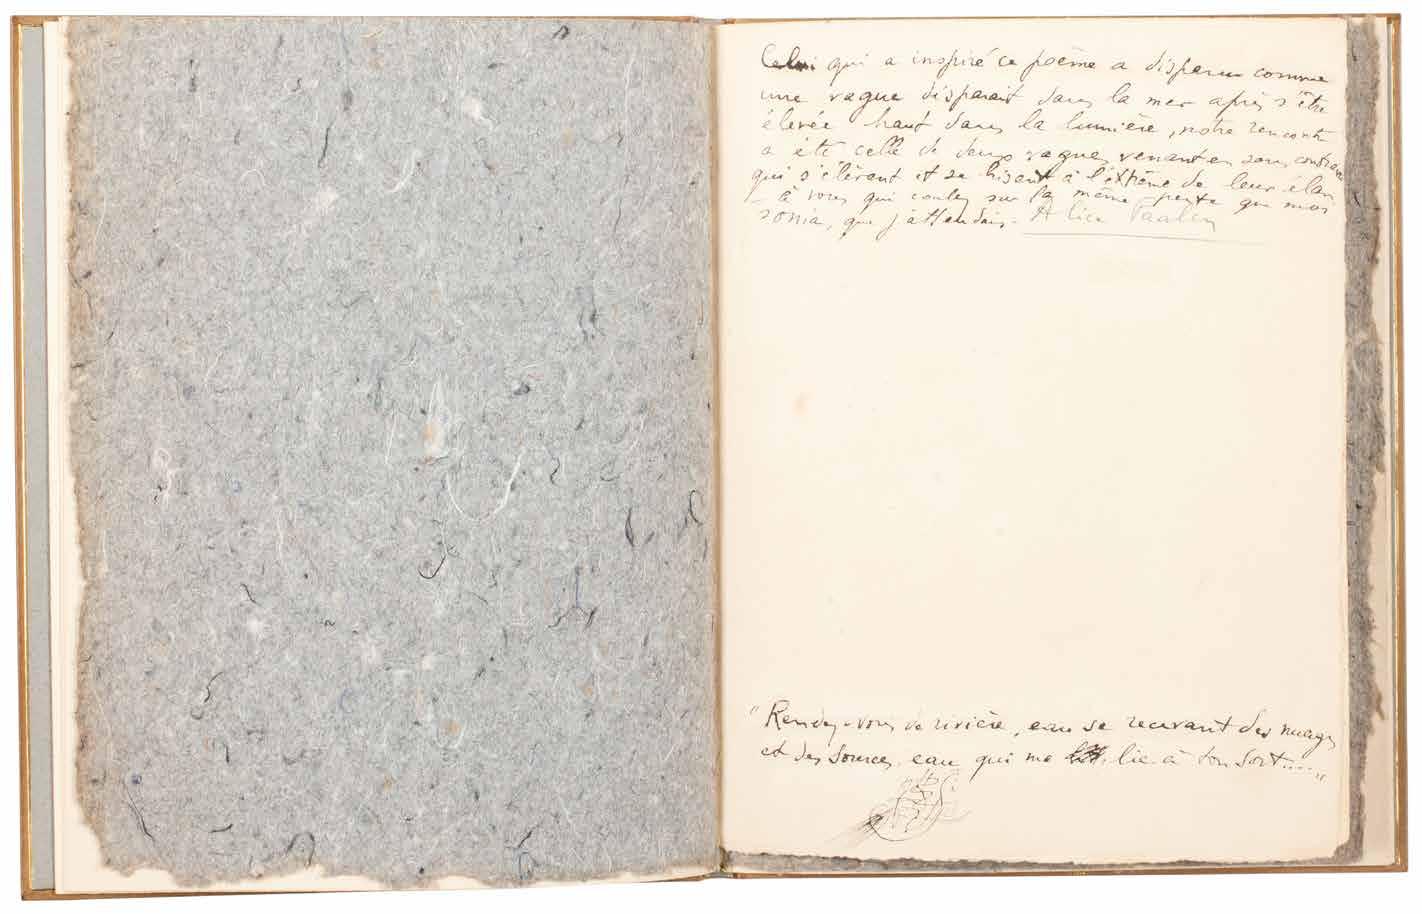 Celui qui a inspiré ce poème a disparu comme
une vague disparait dans la mer après s'être
élevée haut dans la lumière, notre rencontre
a été celle de deux vagues venant en sens contraire
qui s'élèvent et se hisent à l'extrême de leur élan
à vous qui coulez sur la même pente que moi
sonia, que j'attendais. Alice Paalen
"Rendez-vous de rivière, eau se recevant des nuages
et des sources, eau qui me lie à ton sort...."